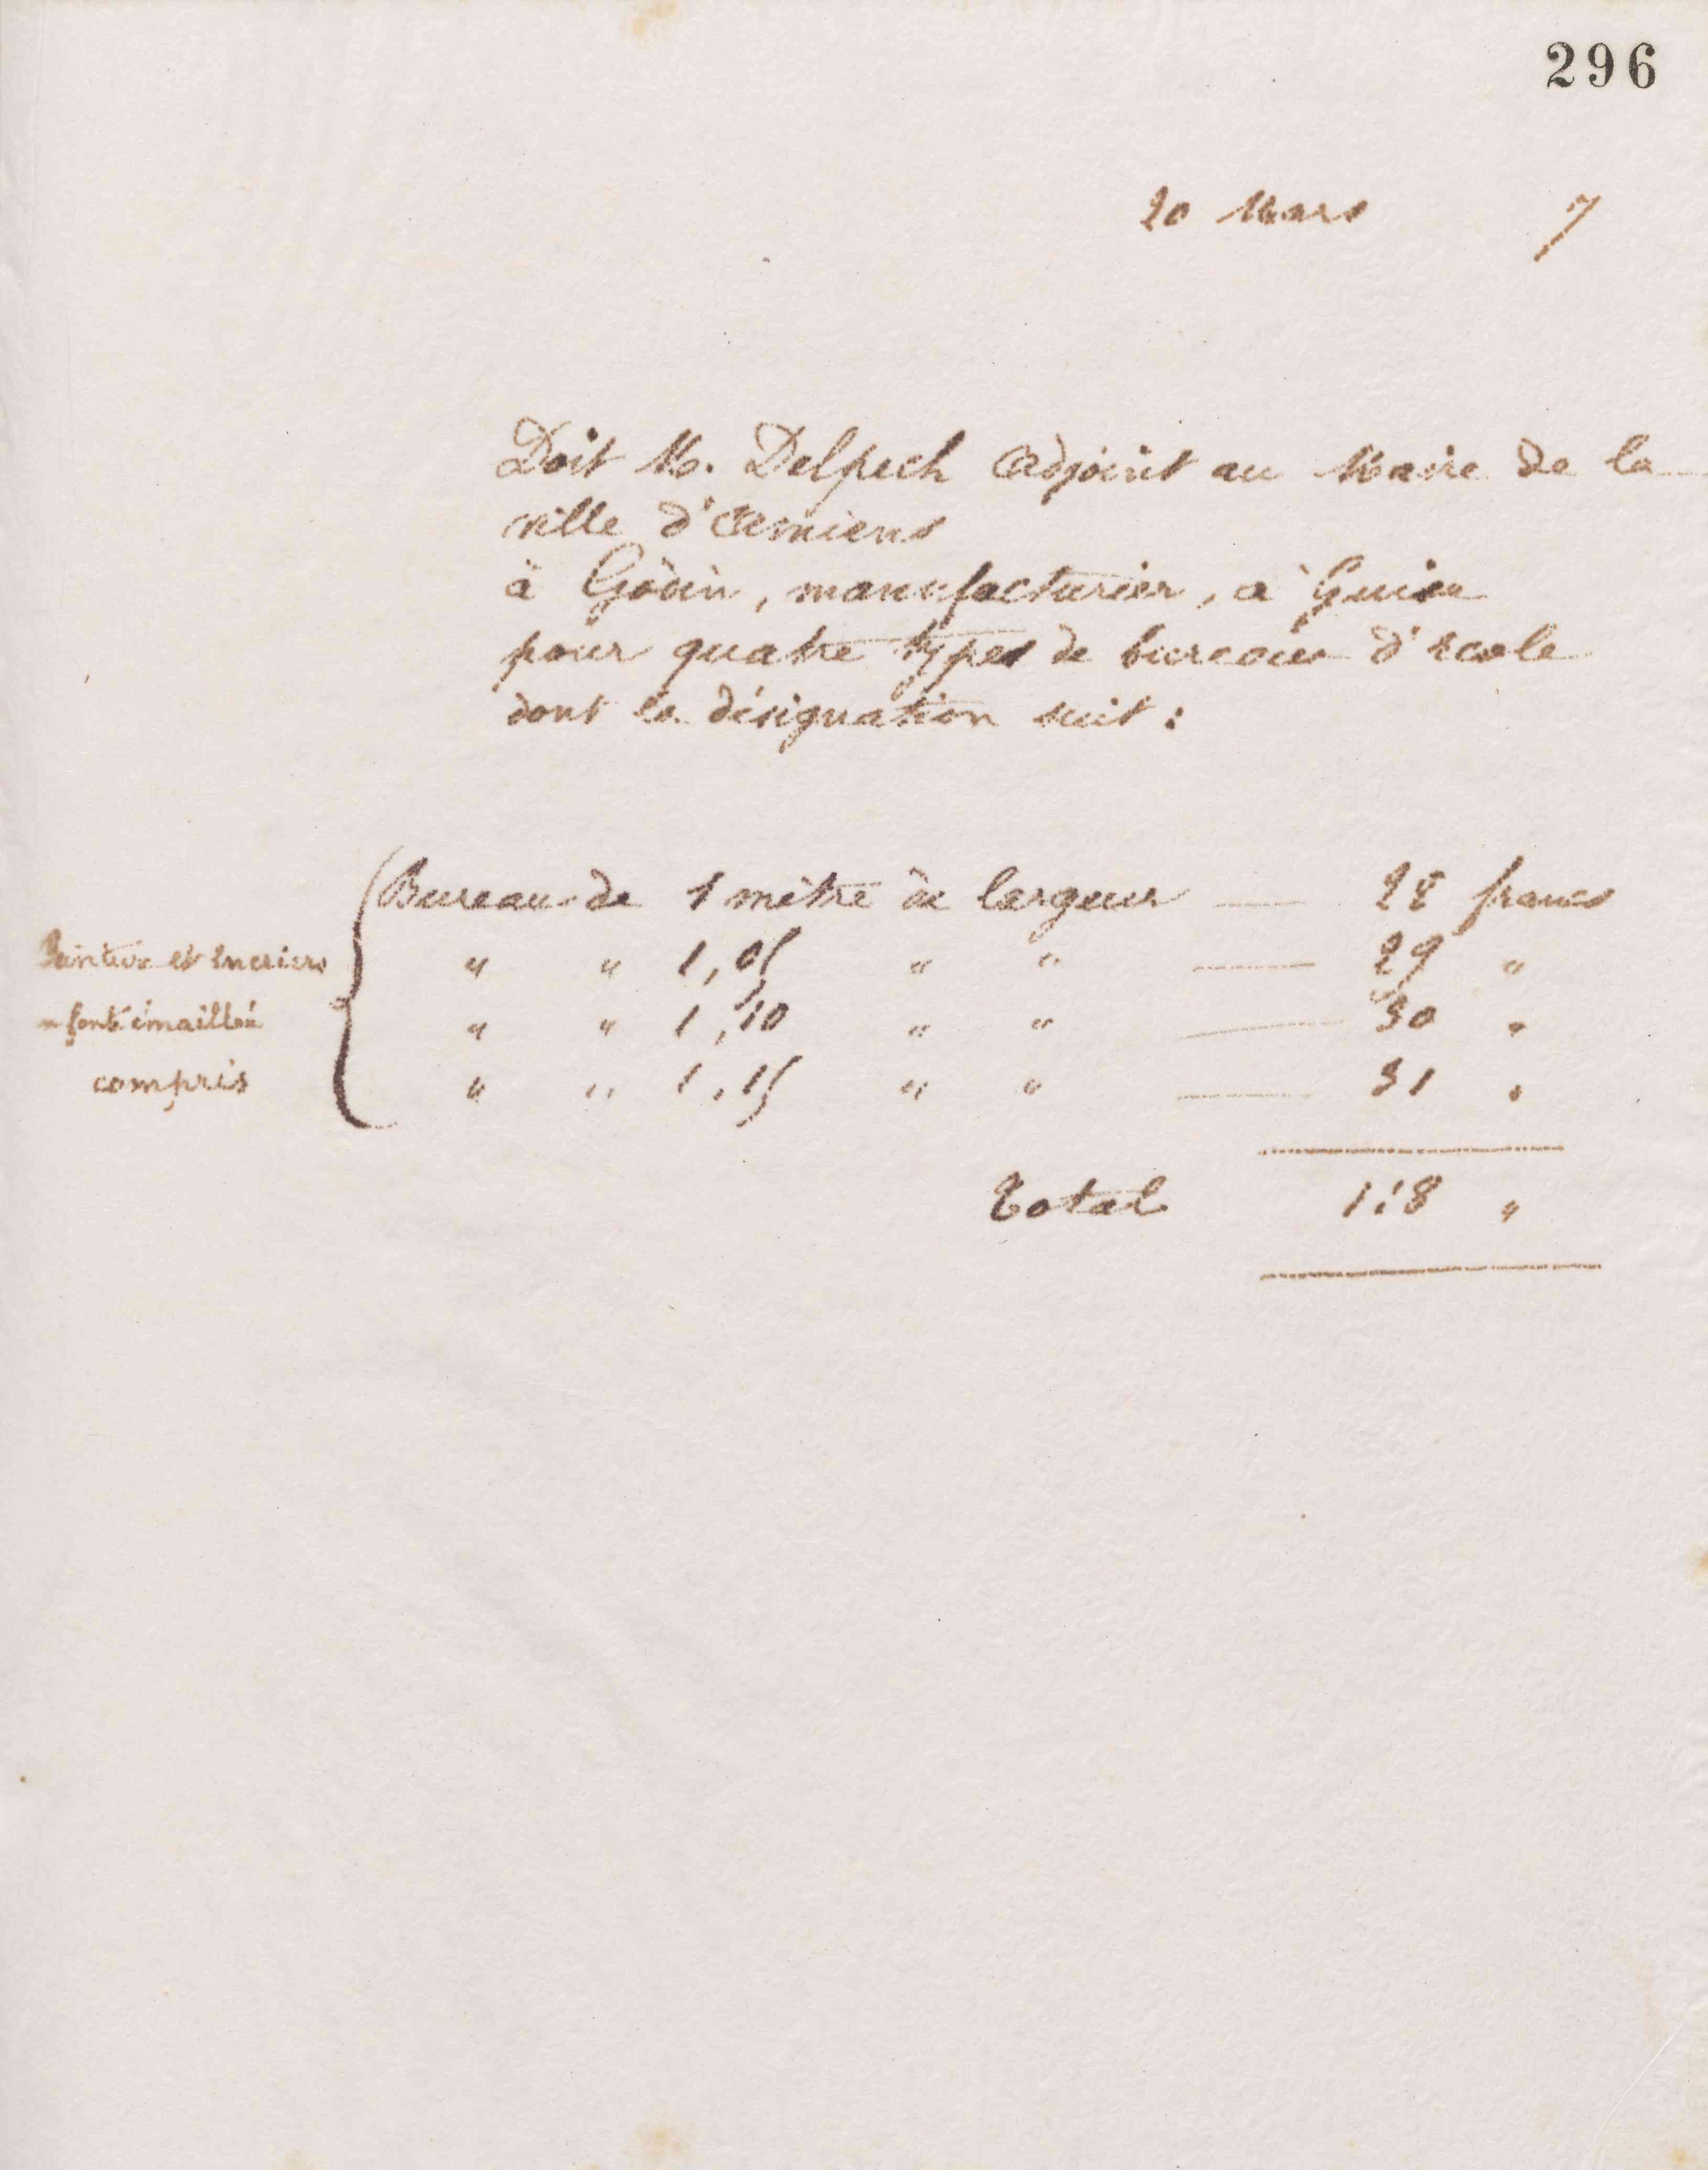 296
20 Mars 7
Doit M. Delpech Adjoint au Maire de la
ville d'Amiens
à Godin, manufacturier, à Guise
pour quatre types de bureaux d'école
dont la désignation suit :
Bureau de 1 mètre de largeur — 28 francs
Peinture et encriers
" " 1,05 " " — 29 "
n fonte émaillée
" " 1,10 " " — 30 "
compris
" " 1,15 " " — 31 "
Total 118 "